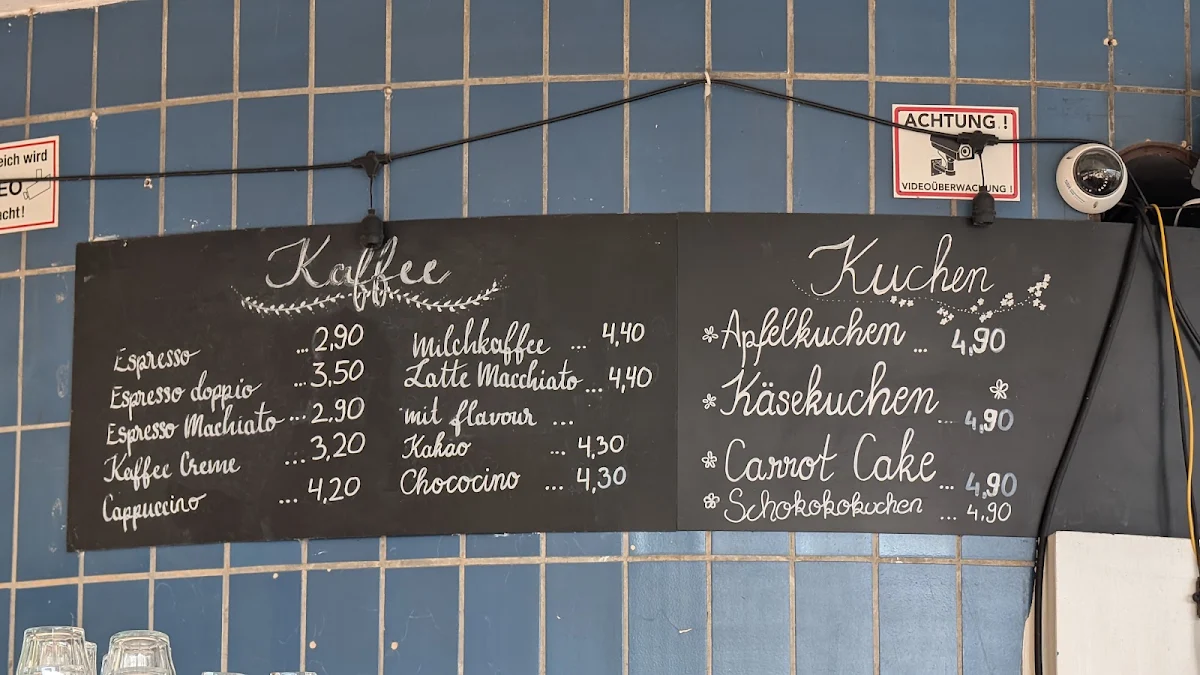 eich wird
EO
acht!
ACHTUNG!
VIDEOÜBERWACHUNG!
Kaffee
Espresso ... 2,90
Espresso doppio ... 3,50
Espresso Machiato ... 2,90
Kaffee Creme ... 3,20
Cappuccino ... 4,20
Milchkaffee ... 4,40
Latte Macchiato ... 4,40
mit flavour ...
Kakao ... 4,30
Chococino ... 4,30
Kuchen
Apfelkuchen ... 4,90
Käsekuchen ... 4,90
Carrot Cake ... 4,90
Schokokokuchen ... 4,90